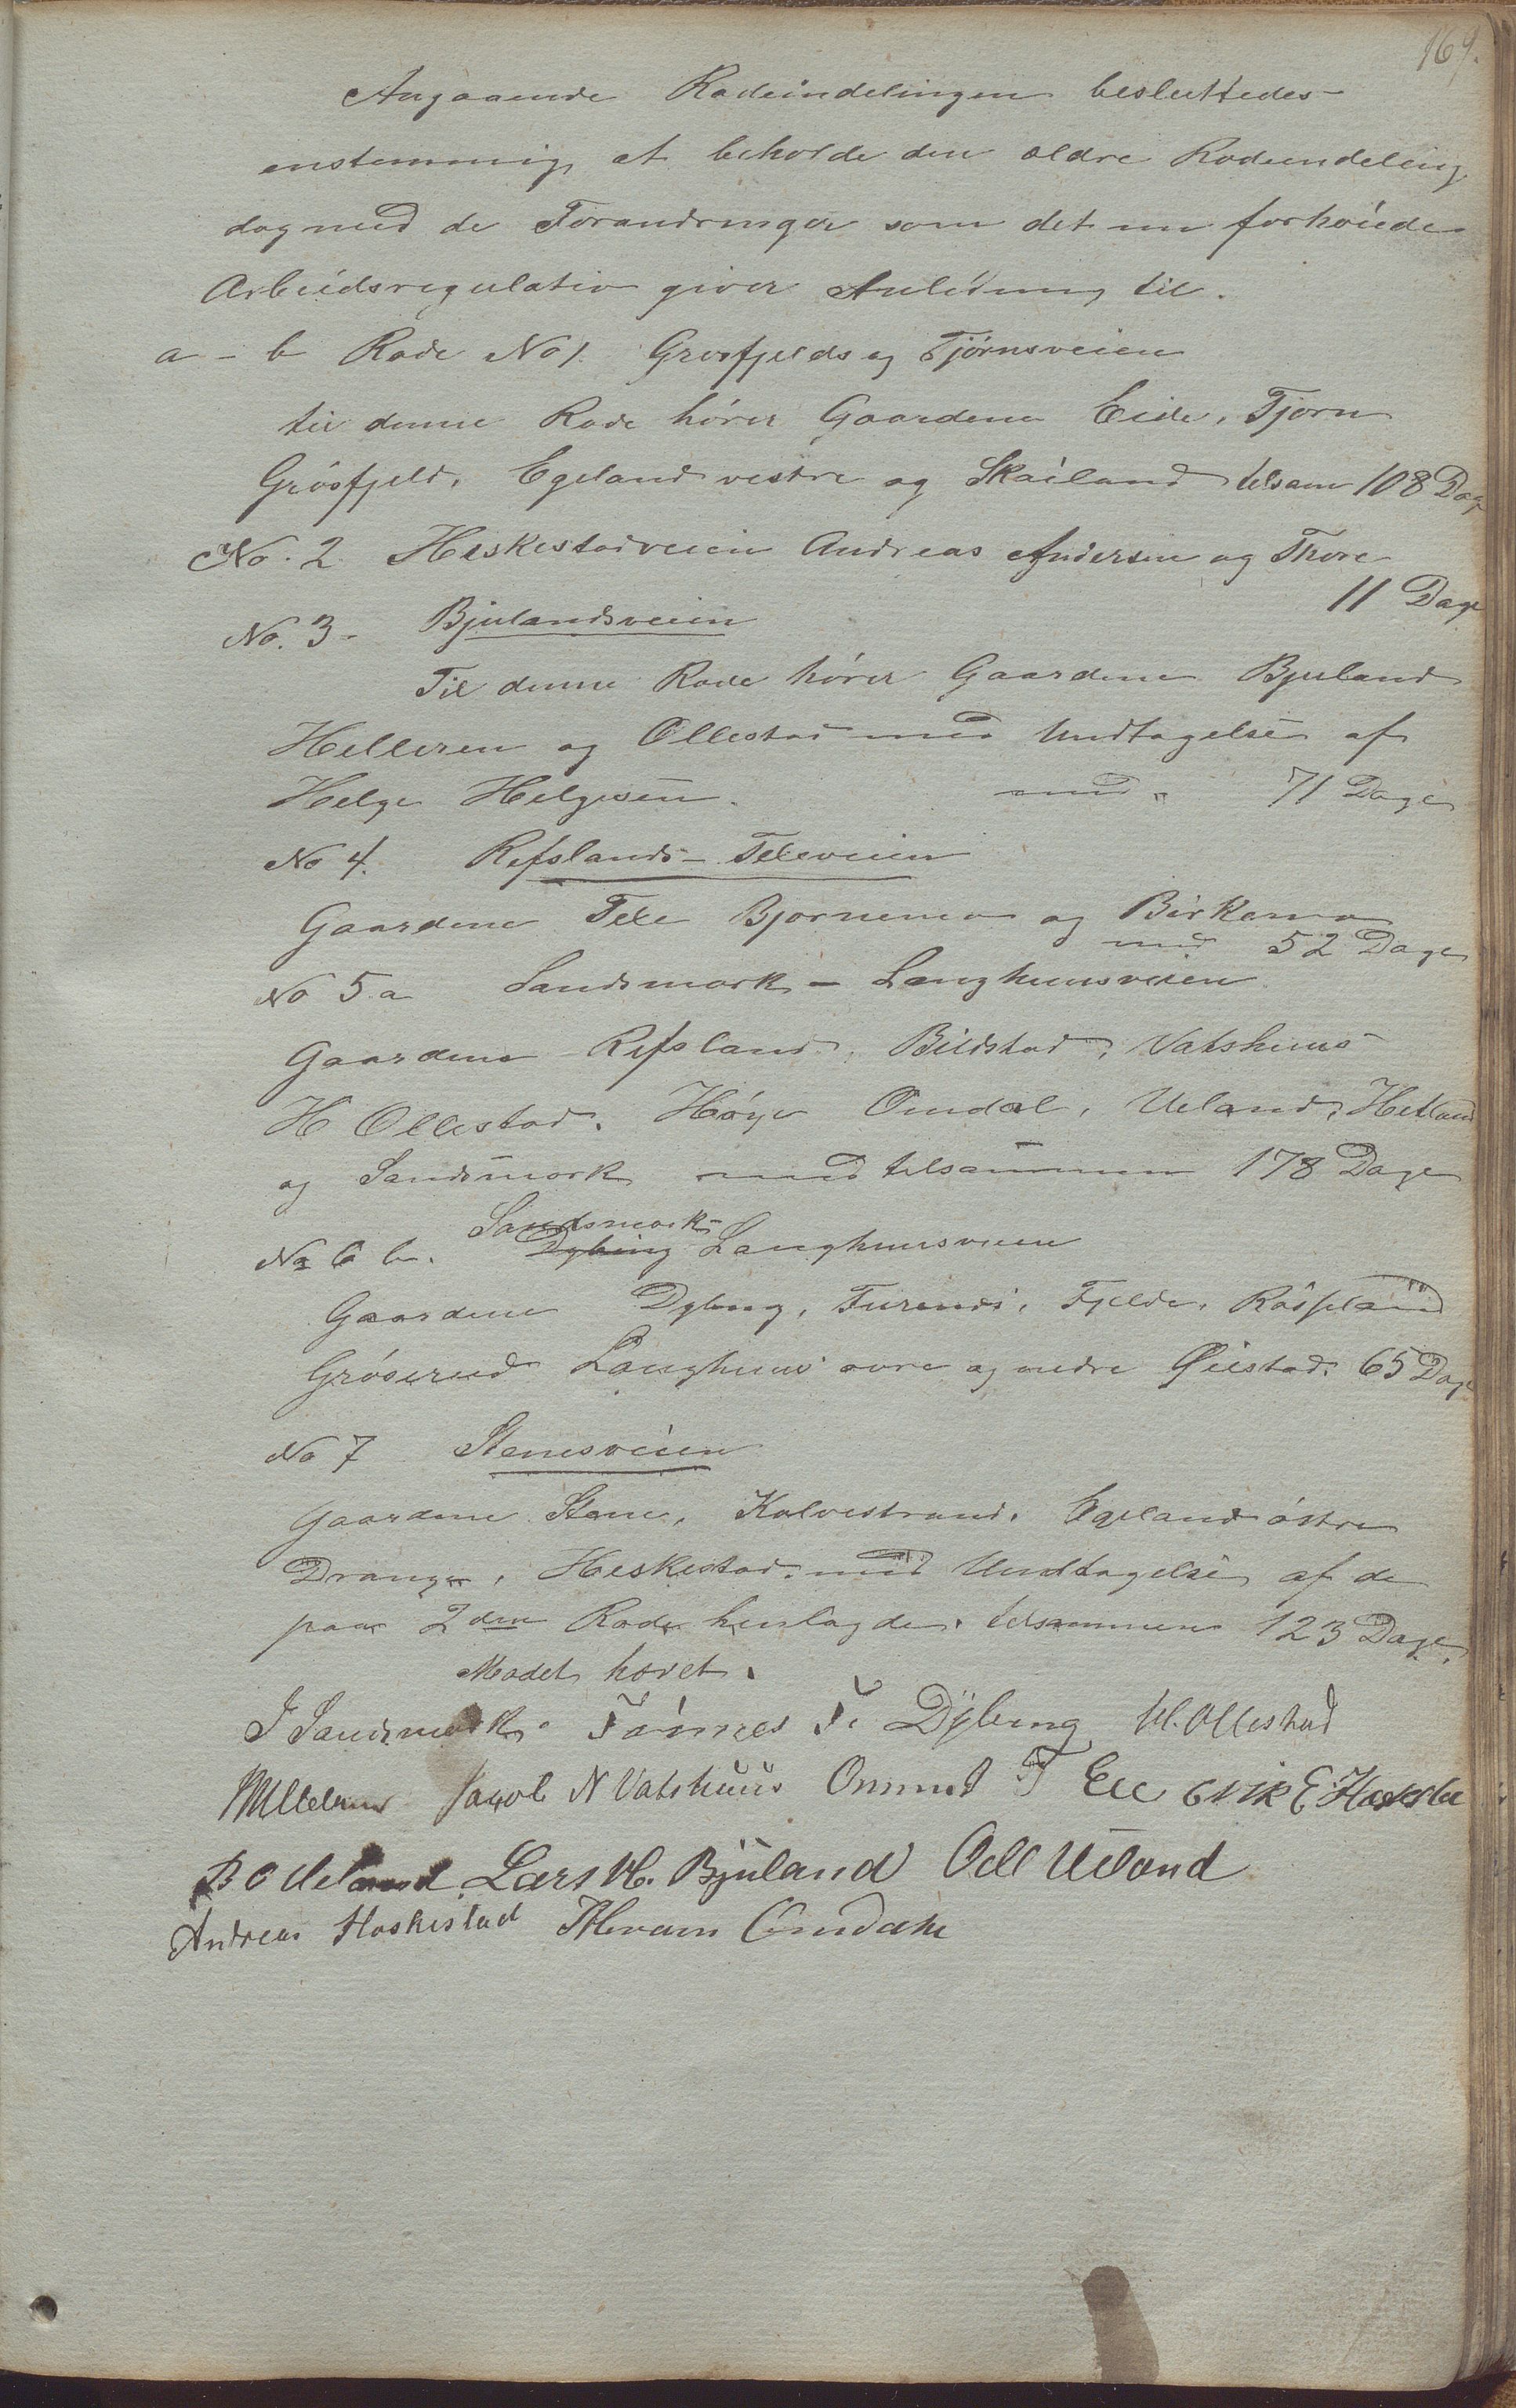 169.
Angaaende Rodeindelingen besluttedes
enstemmig at beholde den ældre Rodeindeling
dog med de Forandringer som det nu forhøiede
Arbeidsregulativ giver Anledning til.
a - b Rode No 1. Grøsfjelds og Tjørnsveien
til denne Rode hører Gaardene Eide, Tjørn
Grøsfjeld, Egeland vestre og Skailand tilsam 108 Dage
No. 2 Heskestadveien Andreas Andersen og Thore
11 Dage
No. 3. Bjulandsveien
Til denne Rode hører Gaardene Bjuland
Helleren og Ollestad med Undtagelse af
Helge Helgesen. med 71 Dage
No 4. Refslands-Televeien
Gaardene Tele Bjornemo og Birkemo
med 52 Dage
No 5.a Sandsmark - Langhuusveien
Gaardene Refsland, Bilstad, Vatshuus
H Ollestad, Høye Omdal, Ueland, Hetland
og Sandsmark med tilsammen 178 Dage
Sandsmark-
No 6 b. Dybing Langhuusveien
Gaardene Dybing, Furenes, Fjelde, Røisland
Grøserud Langhuus øvre og nedre Øiestad 65 Dage
No 7 Stenesveien
Gaardene Stene, Kalvestrand, Egeland østre
Drange, Heskestad med Undtagelse af de
paa 2den Rode henlagde, tilsammen 123 Dage.
Mødet hævet.
J Sandsmark. Tønnes T. Dybing H. Ollestad
Jacob N Vatshuus Ommund T Eie Erik E. Heskestad
B O Ueland Lars H. Bjuland Odd Ueland
Andreas Heskestad Omdahl